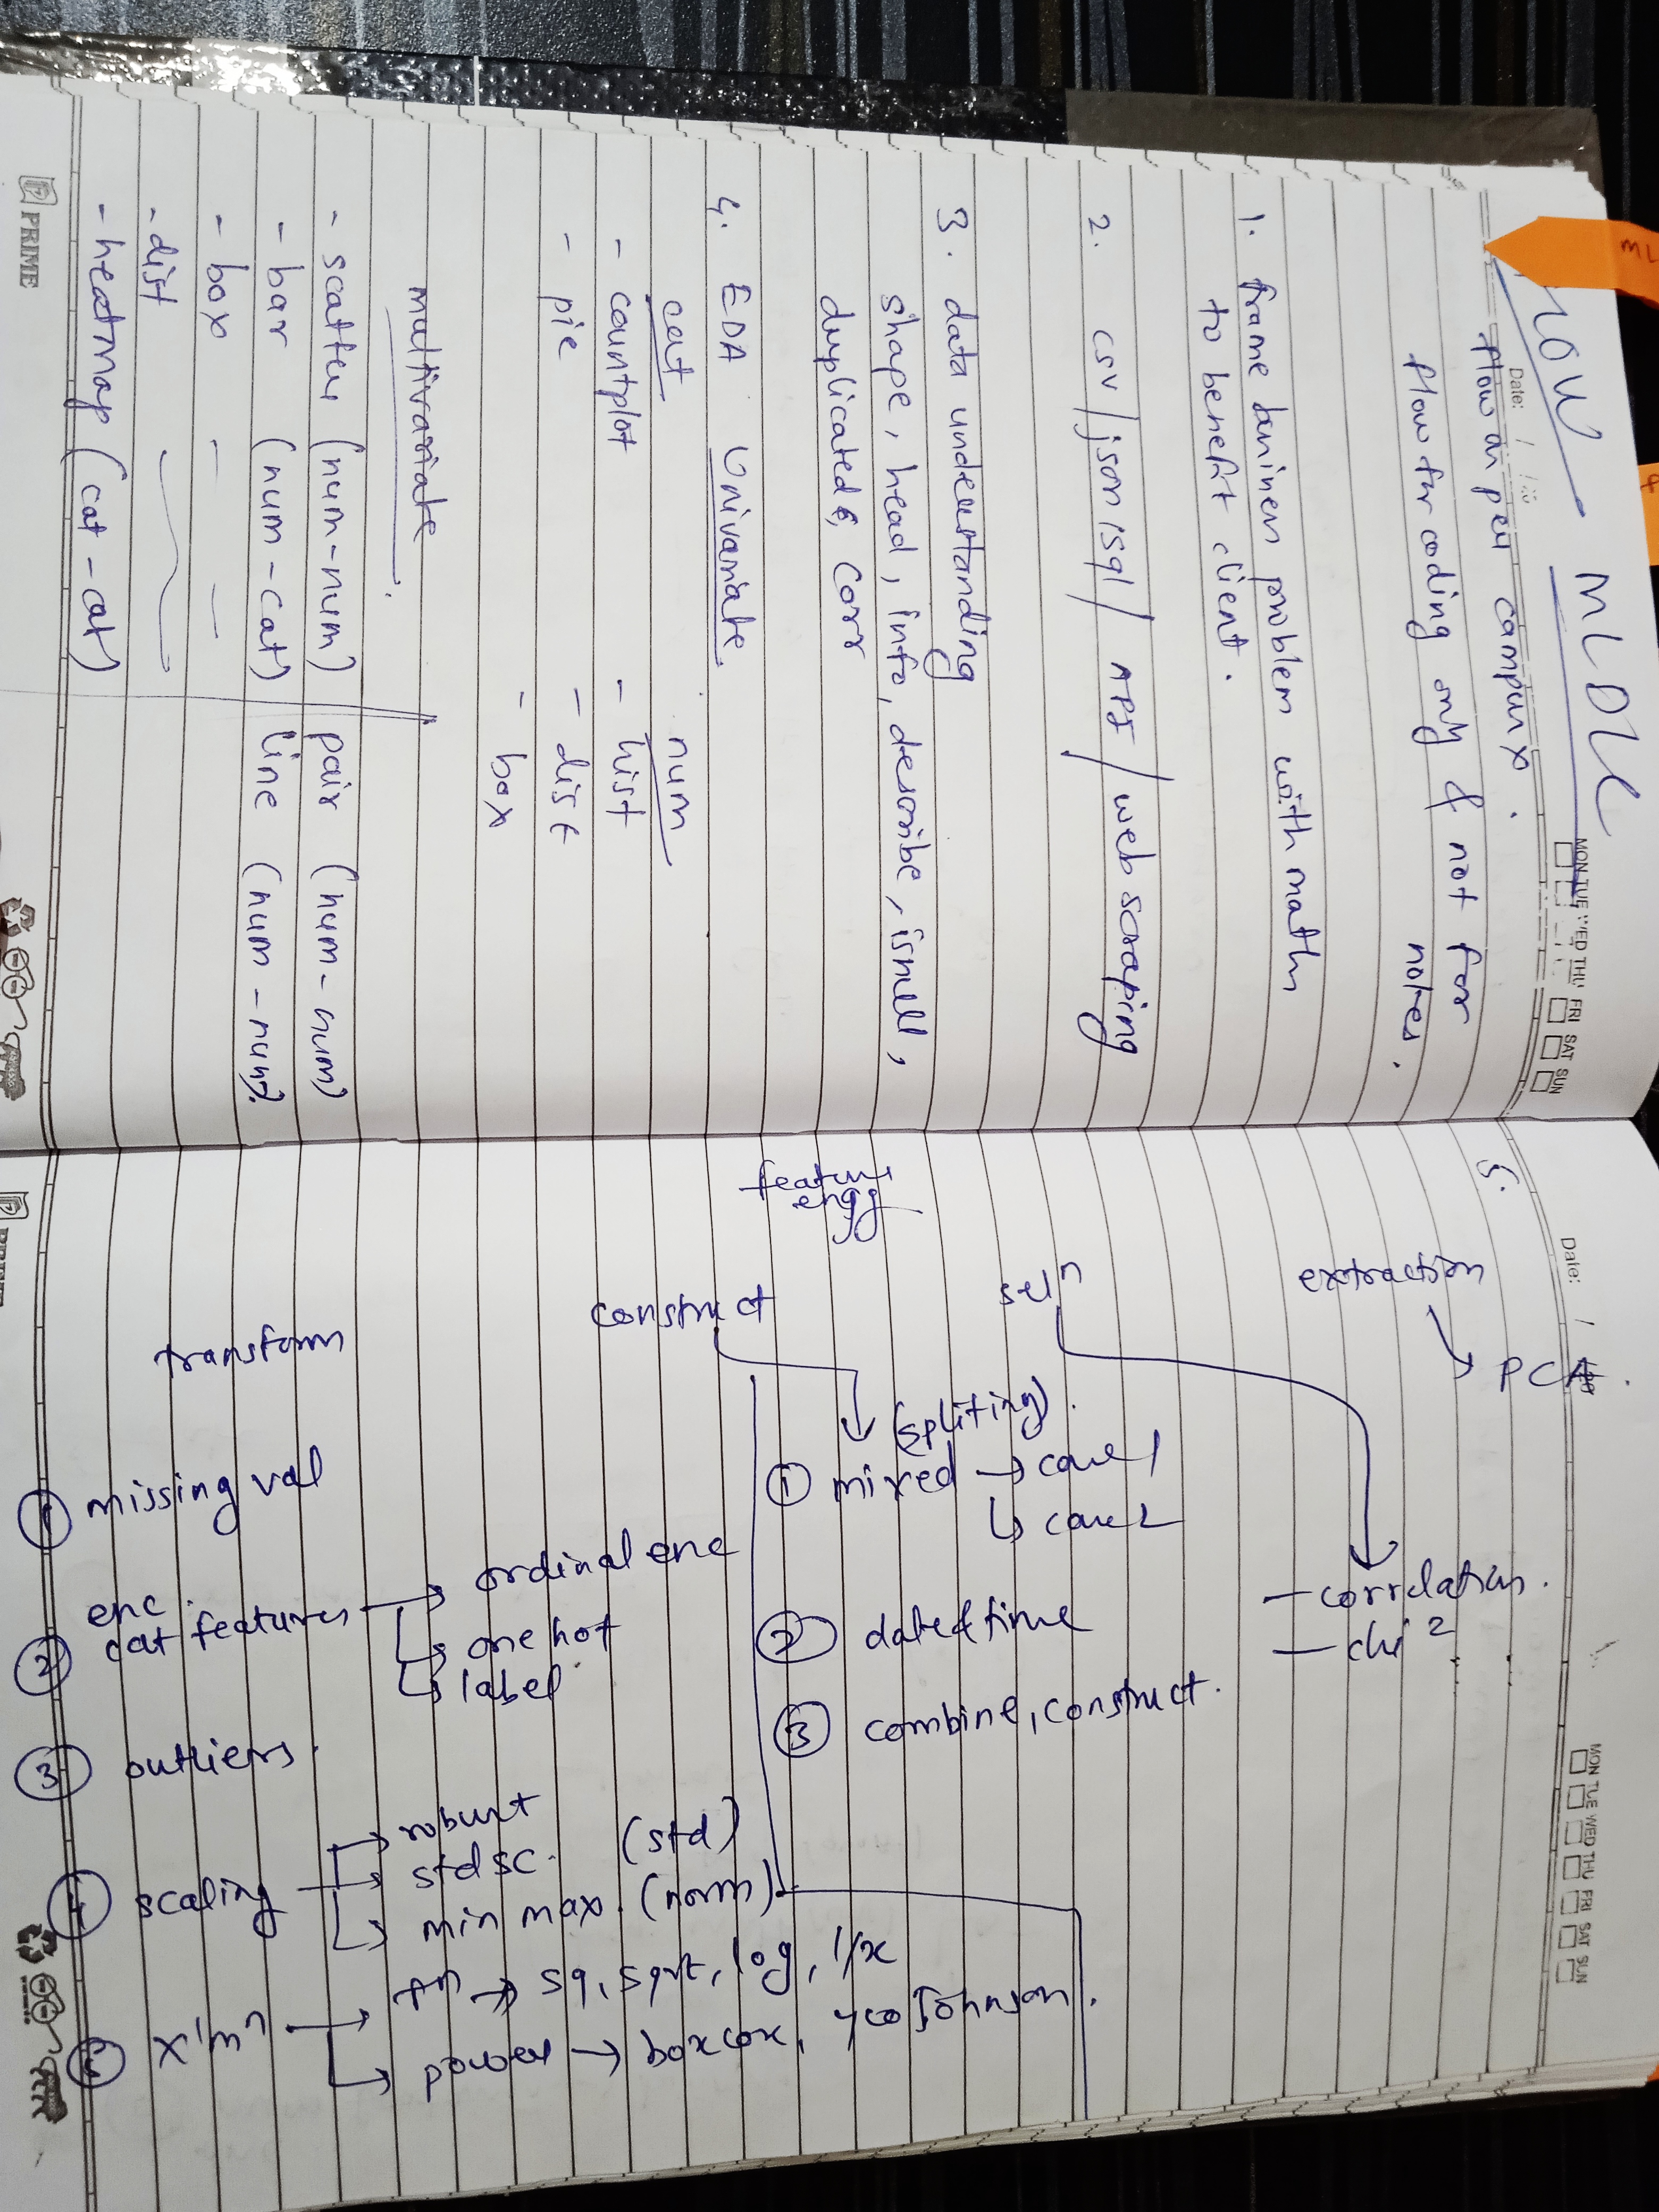 ML
FLOW - MLDLC
Date: / /
MON TUE WED THU FRI SAT SUN
flow as per campusx.
flow for coding only & not for
notes.
1. frame business problem with math
to benefit client.
2. csv / json / sql / API / web scraping
3. data understanding
shape, head, info, describe, isnull,
duplicated, corr
4. EDA Univariate
cat num
- countplot - hist
- pie - dist
- box
multivariate
- scatter (num-num) pair (num-num)
- bar (num-cat) line (num-num)
- box
- dist
- heatmap (cat-cat)
PRIME
Date: /
MON TUE WED THU FRI SAT SUN
5.
extraction
PCA.
seln
- correlation.
- chi2
feature
engg
construct
(spliting).
① mixed → case 1
↳ case 2
② date & time
③ combine, construct.
transform
① missing val
② enc
cat features → ordinal enc
one hot
label
③ outliers.
④ scaling → robust
std sc. (std)
min max. (norm)
⑤ x'mn → fn → sq, sqrt, log, 1/x
power → boxcox, yeo Johnson.